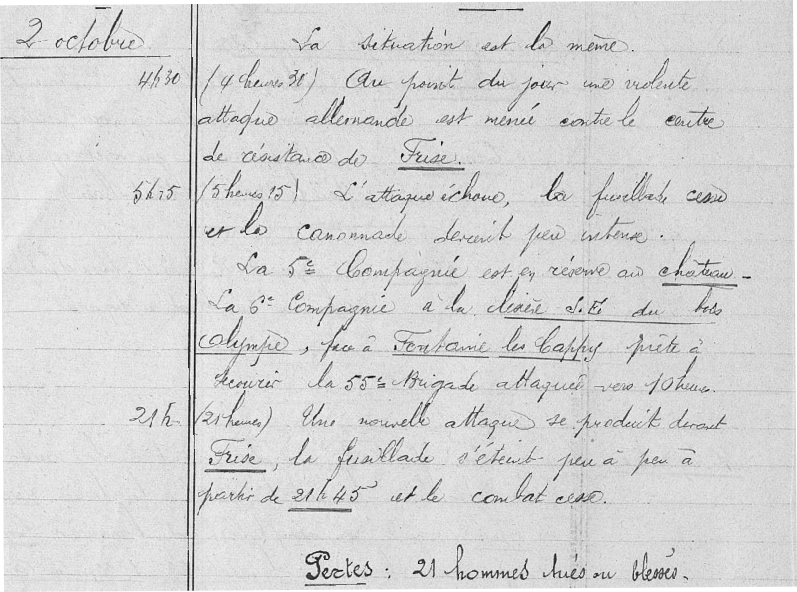 2 octobre
La situation est la même.
4h30 (4 heures 30) Au point du jour une violente
attaque allemande est menée contre le centre
de résistance de Frise.
5h15 (5 heures 15) L'attaque échoue, la fusillade cesse
et la canonnade devient peu intense.
La 5e Compagnie est en réserve au château -
La 6e Compagnie à la lisière S.E. du bois
Olympe, face à Fontaine les Cappy prête à
secourir la 55e Brigade attaquée vers 10 heures.
21h (21 heures) Une nouvelle attaque se produit devant
Frise, la fusillade s'éteint peu à peu à
partir de 21h45 et le combat cesse.
Pertes : 21 hommes tués ou blessés.